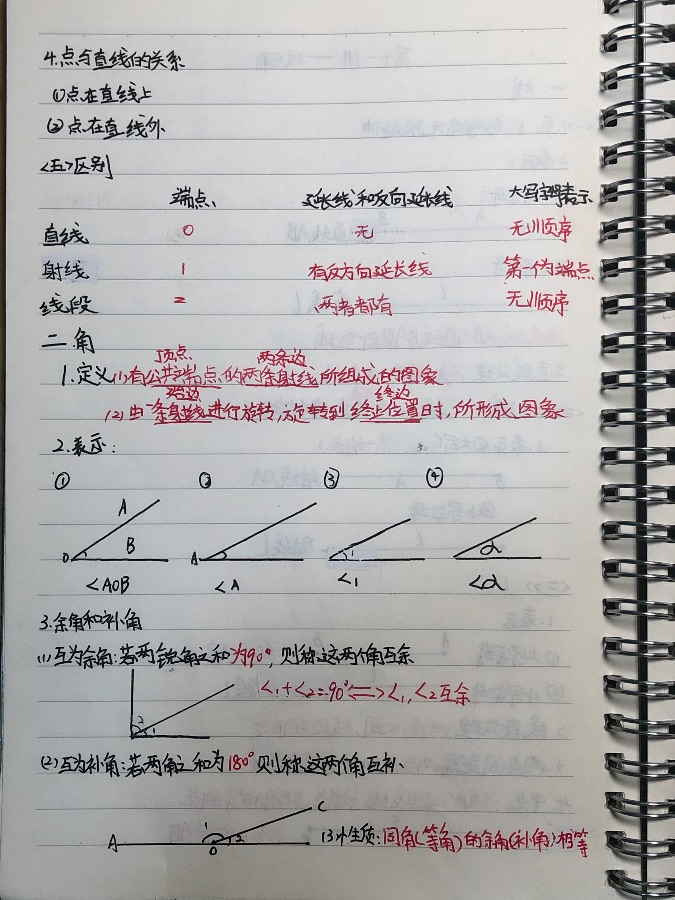 4.点与直线的关系
①点在直线上
②点在直线外
<五>区别
端点 延长线和反向延长线 大写字母表示
直线 0 无 无顺序
射线 1 有反方向延长线 第一个为端点
线段 2 两者都有 无顺序
二角
顶点 两条边
1.定义(1)有公共端点的两条射线所组成的图象
始边 终边
(2)由一条射线进行旋转,旋转到终止位置时,所形成图象
2.表示:
① ② ③ ④
A
B
O
A
1
α
∠AOB ∠A ∠1 ∠α
3.余角和补角
(1)互为余角:若两锐角之和为90°,则称这两个角互余
∠1+∠2=90°⇔∠1,∠2互余
2
1
(2)互为补角:若两角之和为180°则称这两个角互补
C
1
A 2
O
(3)性质:同角(等角)的余角(补角)相等